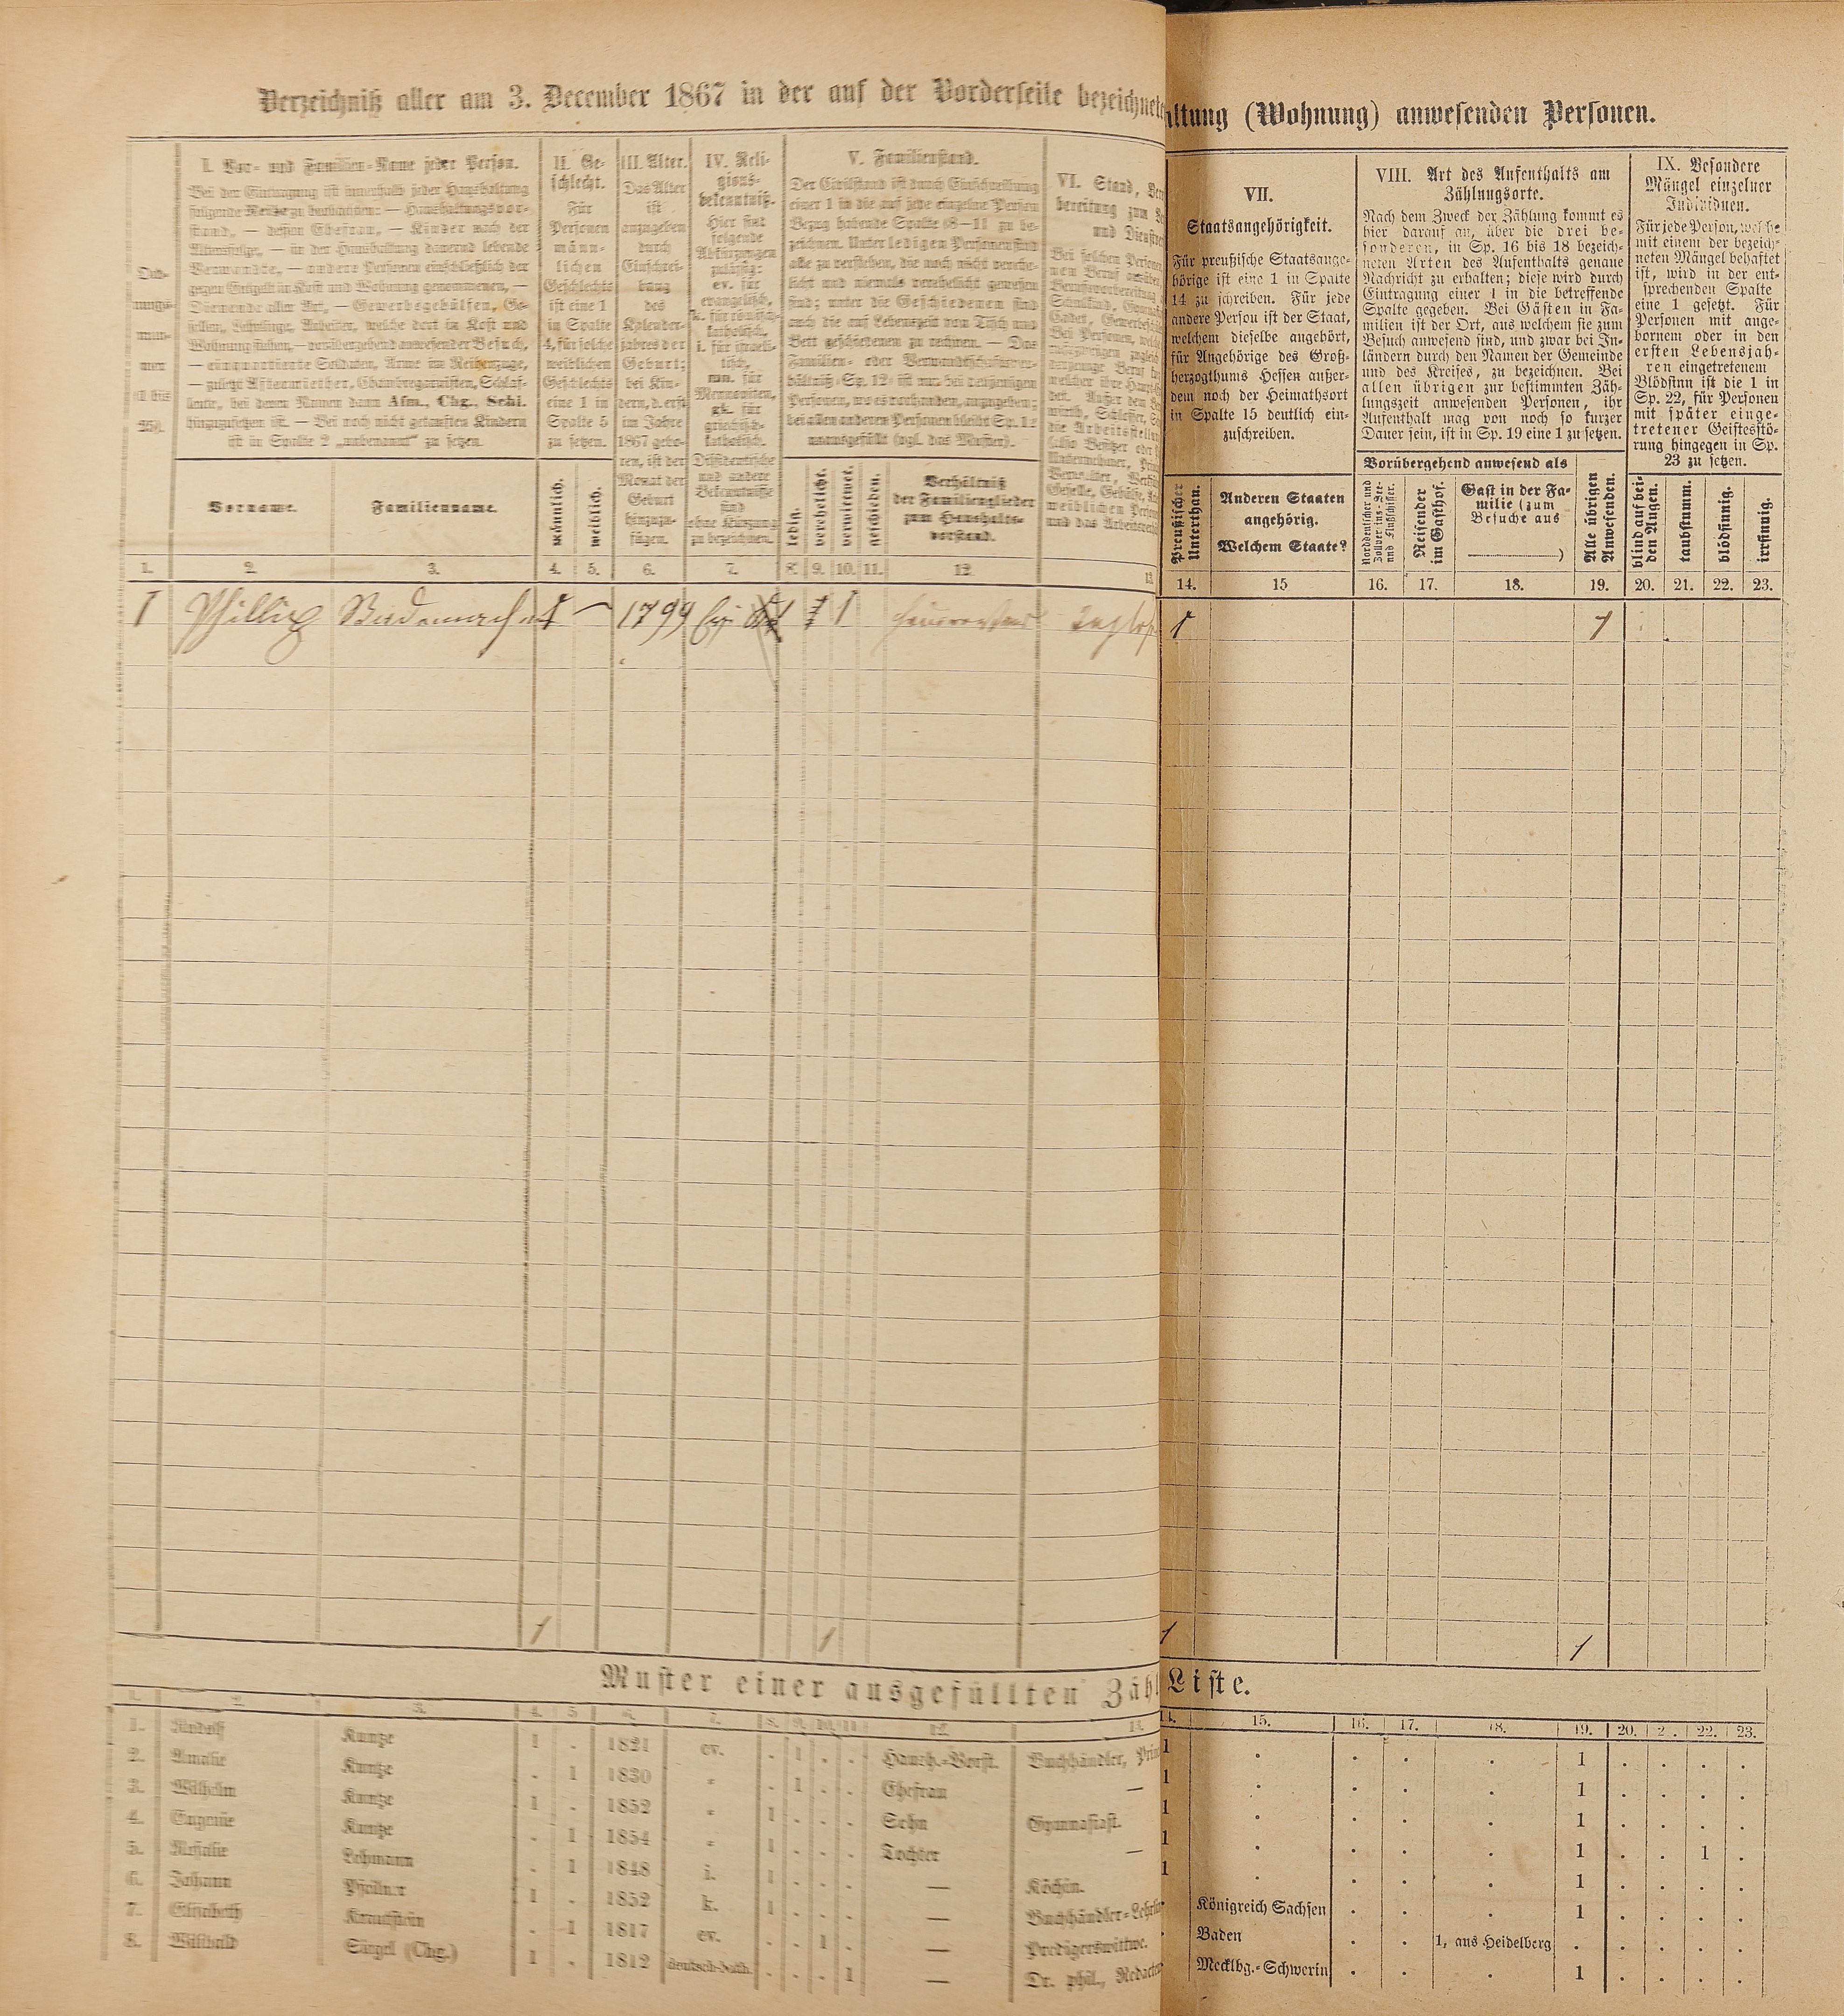 Verzeichniß aller am 3. December 1867 in der auf der Vorderseite bezeichnete
altung (Wohnung) anwesenden Personen.
I. Vor- und Familien-Name jeder Person.
Bei der Eintragung ist innerhalb jeder Haushaltung
folgende Reihe zu beobachten: — Haushaltungsvor-
stand, — dessen Ehefrau, — Kinder nach der
Altersfolge, — in der Haushaltung dauernd lebende
Verwandte, — andere Personen einschließlich der
gegen Entgelt in Kost und Wohnung genommenen, —
Dienende aller Art, — Gewerbsgehülfen, Ge-
sellen, Lehrlinge, Arbeiter, welche dort in Kost und
Wohnung stehen, — vorübergehend anwesender Besuch,
— einquartierte Soldaten, Arme im Reihenzuge,
— zuletzt Aftermiether, Chambregarnisten, Schlaf-
leute, bei deren Namen dann Afm., Chg., Schl.
hinzuzusetzen ist. — Bei noch nicht getauften Kindern
ist in Spalte 2 „unbenannt“ zu setzen.
Ord-
nungs-
num-
mer
(1 bis
25).
Vorname.
Familienname.
II. Ge-
schlecht.
Für
Personen
männ-
lichen
Geschlechts
ist eine 1
in Spalte
4, für solche
weiblichen
Geschlechts
eine 1 in
Spalte 5
zu setzen.
männlich.
weiblich.
III. Alter.
Das Alter
ist
anzugeben
durch
Einschrei-
bung
des
Kalender-
jahres der
Geburt;
bei Kin-
dern, d. erst
im Jahre
1867 gebo-
ren, ist der
Monat der
Geburt
hinzuzu-
fügen.
IV. Reli-
gions-
bekenntniß.
Hier sind
folgende
Abkürzungen
zulässig:
ev. für
evangelisch,
k. für römisch-
katholisch,
i. für israeli-
tisch,
mn. für
Mennoniten,
gk. für
griechisch-
katholisch.
Dissidentische
und andere
Bekenntnisse
sind
ohne Kürzung
zu bezeichnen.
V. Familienstand.
Der Civilstand ist durch Einschreibung
einer 1 in die auf jede einzelne Person
Bezug habende Spalte (8—11) zu be-
zeichnen. Unter ledigen Personen sind
alle zu verstehen, die noch nicht verehe-
licht und niemals verehelicht gewesen
sind; unter die Geschiedenen sind
auch die auf Lebenszeit von Tisch und
Bett geschiedenen zu rechnen. — Das
Familien- oder Verwandtschaftsver-
hältniß (Sp. 12) ist nur bei denjenigen
Personen, wo es vorhanden, anzugeben;
bei allen anderen Personen bleibt Sp. 12
unausgefüllt (vgl. das Muster).
ledig.
verehelicht.
verwittwet.
geschieden.
Verhältniß
der Familienglieder
zum Haushalts-
vorstand.
VI. Stand, Ber
bereitung zum Be
und Dienstver
VII.
Staatsangehörigkeit.
Für preußische Staatsange-
hörige ist eine 1 in Spalte
14 zu schreiben. Für jede
andere Person ist der Staat,
welchem dieselbe angehört,
für Angehörige des Groß-
herzogthums Hessen außer-
dem noch der Heimathsort
in Spalte 15 deutlich ein-
zuschreiben.
Preußischer
Unterthan.
Anderen Staaten
angehörig.
Welchem Staate?
VIII. Art des Aufenthalts am
Zählungsorte.
Nach dem Zweck der Zählung kommt es
hier darauf an, über die drei be-
sonderen, in Sp. 16 bis 18 bezeich-
neten Arten des Aufenthalts genaue
Nachricht zu erhalten; diese wird durch
Eintragung einer 1 in die betreffende
Spalte gegeben. Bei Gästen in Fa-
milien ist der Ort, aus welchem sie zum
Besuch anwesend sind, und zwar bei In-
ländern durch den Namen der Gemeinde
und des Kreises, zu bezeichnen. Bei
allen übrigen zur bestimmten Zäh-
lungszeit anwesenden Personen, ihr
Aufenthalt mag von noch so kurzer
Dauer sein, ist in Sp. 19 eine 1 zu setzen.
Vorübergehend anwesend als
Norddeutscher und
Zollver ins-See-
und Flußschiffer.
Reisender
im Gasthof.
Gast in der Fa-
milie (zum
Besuche aus
)
Alle übrigen
Anwesenden.
IX. Besondere
Mängel einzelner
Individuen.
Für jede Person, welche
mit einem der bezeich-
neten Mängel behaftet
ist, wird in der ent-
sprechenden Spalte
eine 1 gesetzt. Für
Personen mit ange-
bornem oder in den
ersten Lebensjah-
ren eingetretenem
Blödsinn ist die 1 in
Sp. 22, für Personen
mit später einge-
tretener Geistesstö-
rung hingegen in Sp.
23 zu setzen.
blind auf bei-
den Augen.
taubstumm.
blödsinnig.
irrsinnig.
1. 2. 3. 4. 5. 6. 7. 8. 9. 10. 11. 12. 13 14. 15 16. 17. 18. 19. 20. 21. 22. 23.
1 Phillip Rademacher 1 — 1799 Ev. 1 1 1
1 1 1 1
Muster einer ausgefüllten Zähl
Liste.
1. 2. 3. 4. 5 6. 7. 8. 9. 10. 11 12. 13. 14. 15. 16. 17. 18. 19. 20. 2 . 22. 23.
1. Rudolf Kuntze 1 . 1821 ev. . 1 . . Haush.-Vorst. Buchhändler, Prin 1 . . . . 1 . . . .
2. Amalie Kuntze . 1 1830 „ . 1 . . Ehefrau — 1 . . . . 1 . . . .
3. Wilhelm Kuntze 1 . 1852 „ 1 . . . Sohn Gymnasiast. 1 . . . . 1 . . . .
4. Eugenie Kuntze . 1 1854 „ 1 . . . Tochter — 1 . . . . 1 . . 1 .
5. Rosalie Lehmann . 1 1848 i. 1 . . . — Köchin. 1 . . . . 1 . . . .
6. Johann Pfeilner 1 . 1852 k. 1 . . . — Buchhändler-Lehrlin Königreich Sachsen . . . 1 . . . .
7. Elisabeth Krautstein . 1 1817 ev. . . 1 . — Predigerswittwe. . Baden . . 1, aus Heidelberg . . . . .
8. Willibald Süegel (Chg.) 1 . 1812 deutsch-kath. . . . 1 — Dr. phil., Redacteu Mecklbg.-Schwerin . . . 1 . . . .